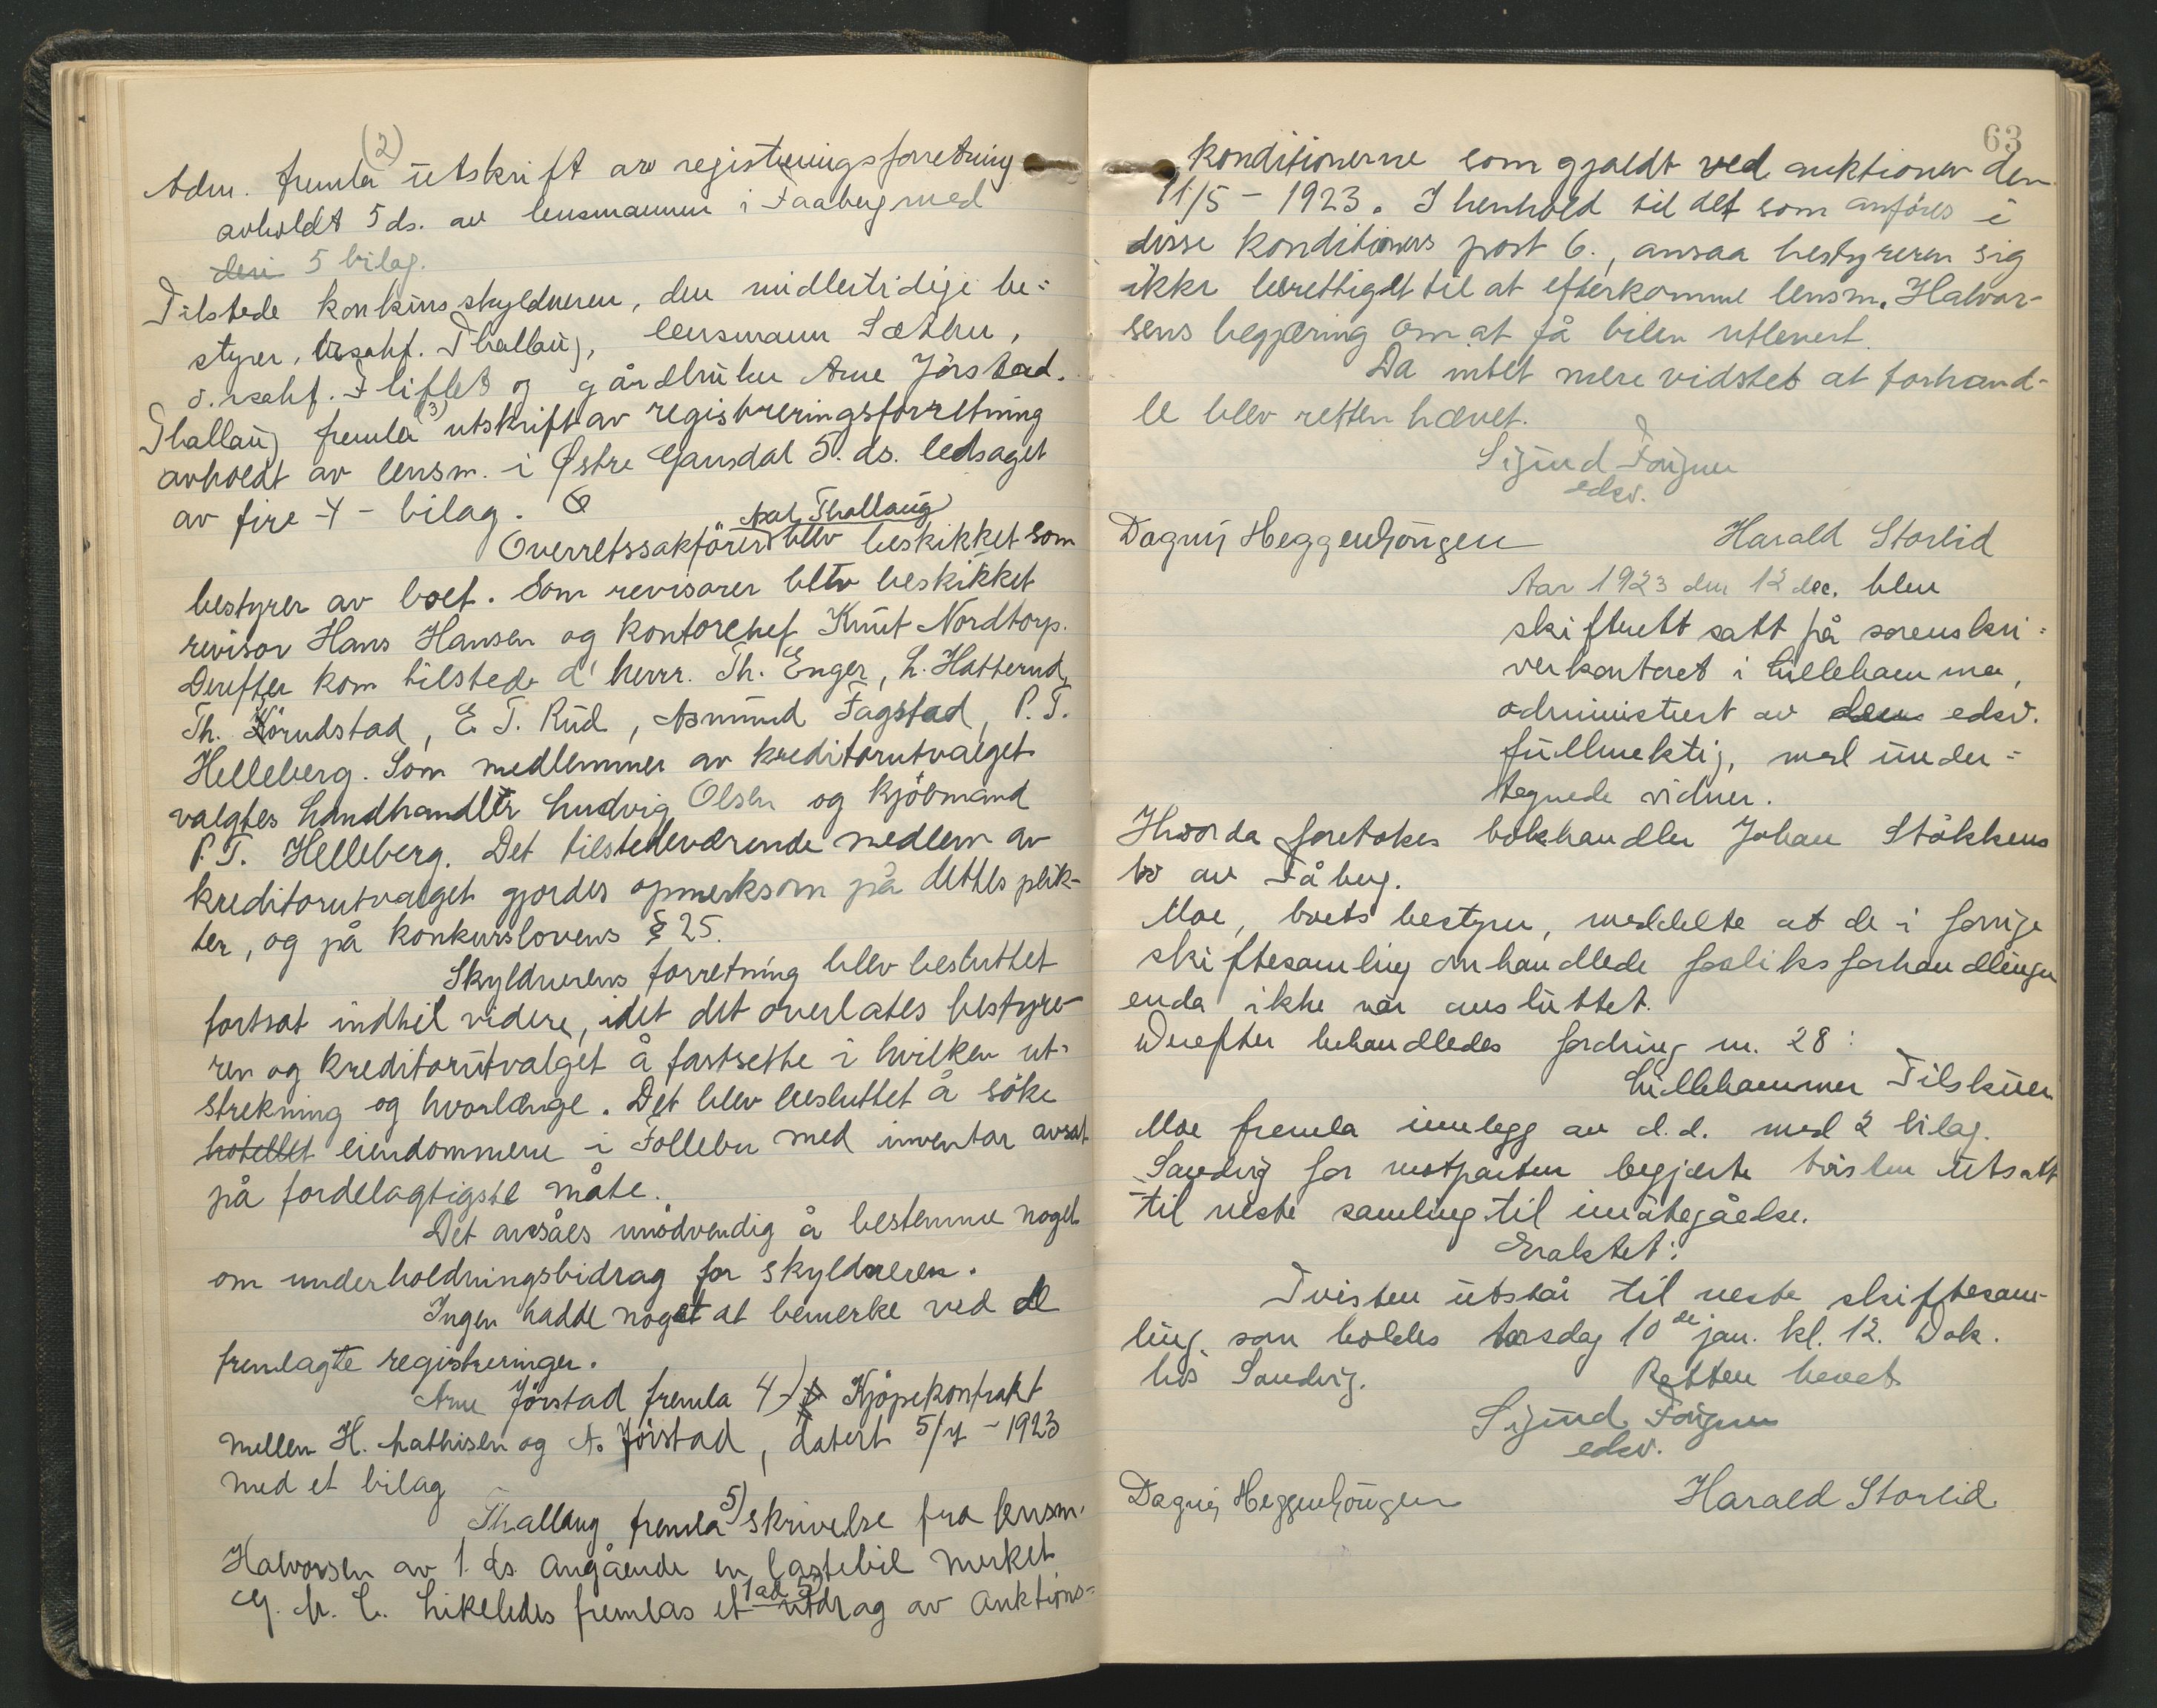 (2)
Adm. fremla utskrift av registreringsforretning
avholdt 5 ds. av lensmannen i Faaberg med
5 bilag.
Tilstede konkursskyldneren, den midlertidige be=
styrer, o.r.sakf. Thallaug, lensmann Sæthre,
o.r.sakf. Fliflet og gårdbruker Arne Jörstad.
Thallaug fremla 3) utskrift av registreringsforretning
avholdt av lensm. i Østre Gausdal 5. ds. ledsaget
av fire -4- bilag.
Axel Thallaug
Overretssakförer blev beskikket som
bestyrer av boet. Som revisorer blev beskikket
revisor Hans Hansen og kontorchef Knut Nordtorp.
Derefter kom tilstede d'herrr. Th. Enger, L. Hatterud,
Th. Körudstad, E. T. Rud, Asmund Fagstad, P. T.
Helleberg. Som medlemmer av kreditorutvalget
valgtes landhandler Ludvig Olsen og kjöbmand
P. T. Helleberg. Det tilstedeværende medlem av
kreditorutvalget gjordes opmerksom på dettes plik-
ter, og på konkurslovens § 25.
Skyldnerens forretning blev besluttet
fortsat indtil videre, idet det overlates bestyre-
ren og kreditorutvalget å fastsette i hvilken ut-
strekning og hvorlænge. Det blev besluttet å söke
hotellet eiendommene i Follebu med inventar avsat
på fordelagtigste måte.
Det ansåes unödvendig å bestemme noget
om underholdningsbidrag for skyldneren.
Ingen hadde noget at bemerke ved de
fremlagte registreringer.
Arne Jörstad fremla 4) Kjöpekontrakt
mellem H. Mathisen og A. Jörstad, datert 5/4 - 1923
med et bilag
Thallaug fremla 5) skrivelse fra lensm.
Halvorsen av 1. ds. angående en lastebil merket
G. M. C. Likeledes fremlas et 1 ad 5) utdrag av auktions=
63
konditionerne som gjaldt ved auktionen den
11/5 - 1923. I henhold til det som anföres i
disse konditioners post 6., ansaa bestyreren sig
ikke berettiget til at efterkomme lensm. Halvor-
sens begjæring om at få bilen utlevert.
Da intet mere vidstes at forhand-
le blev retten hævet.
Sigurd Faugner
edsv.
Dagny Heggenhougen Harald Storlid
Aar 1923 den 12 dec. blev
skifterett satt på sorenskri=
verkontoret i Lillehammer,
administrert av edsv.
fullmektig, med under=
tegnede vidner.
Hvorda foretokes bokhandler Johan Stökkens
bo av Fåberg.
Moe, boets bestyrer, meddelte at de i forrige
skiftesamling omhandlede forliksforhandlinger
enda ikke var avsluttet.
Derefter behandledes fordring nr. 28:
Lillehammer Tilskuer
Moe fremla innlegg av d.d. med 2 bilag.
Sandvig for motparten begjærte tvisten utsatt
til neste samling til imötegåelse.
Eraktet:
Tvisten utstår til neste skiftesam-
ling, som holdes torsdag 10de jan. kl. 12. Dok.
hos Sandvig.
Retten hevet
Sigurd Faugner
edsv.
Dagny Heggenhougen Harald Storlid